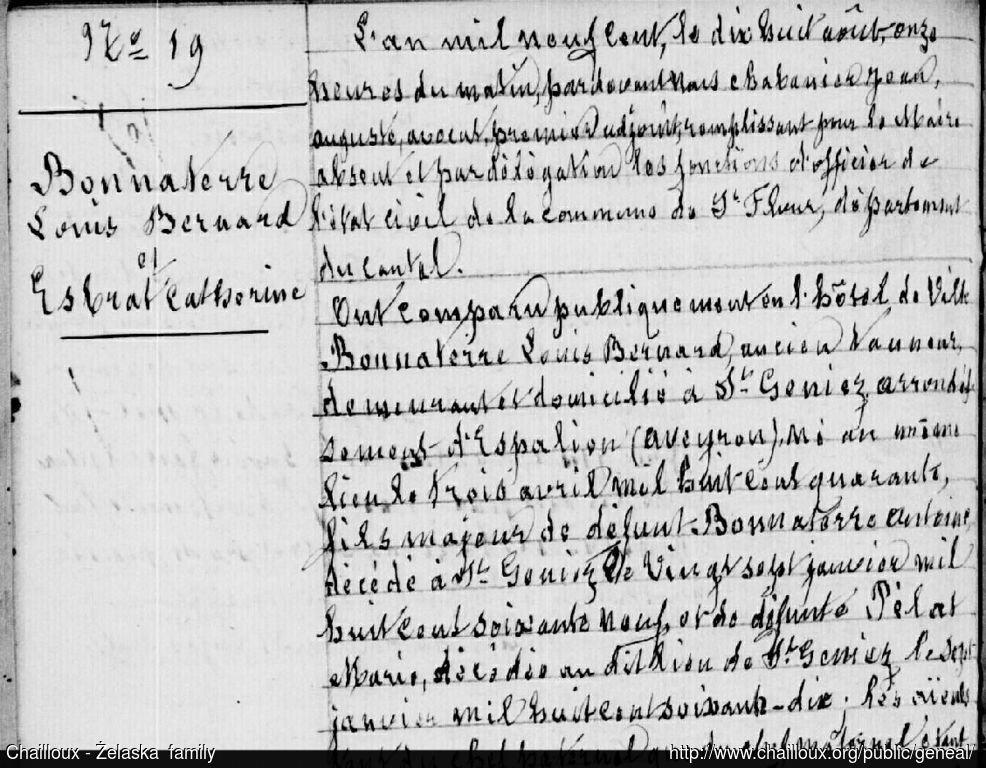 No 19
Bonnaterre
Louis Bernard
et
Esbrat Catherine
L'an mil neuf cent, le dix huit août, onze
heures du matin, pardevant nous Chabanier Jean,
auguste, avocat, premier adjoint, remplissant pour le Maire
absent et par délégation les fonctions d'officier de
l'état civil de la commune de St Flour, département
du Cantal.
Ont comparu publiquement en l'hôtel de Ville
Bonnaterre Louis Bernard, ancien tanneur,
demeurant et domicilié à St Geniez, arrondis
sement d'Espalion (Aveyron), né au même
lieu le trois avril mil huit cent quarante,
fils majeur de défunt Bonnaterre Antoine,
décédé à St Geniez le vingt sept janvier mil
huit cent soixante neuf, et de défunte Pélat
Marie, décédée au dit lieu de St Geniez le sept
janvier mil huit cent soixante-dix; les aïeuls
tant du chef paternel que du chef maternel étant
Chailloux - Żelaska family
http://www.chailloux.org/public/geneal/